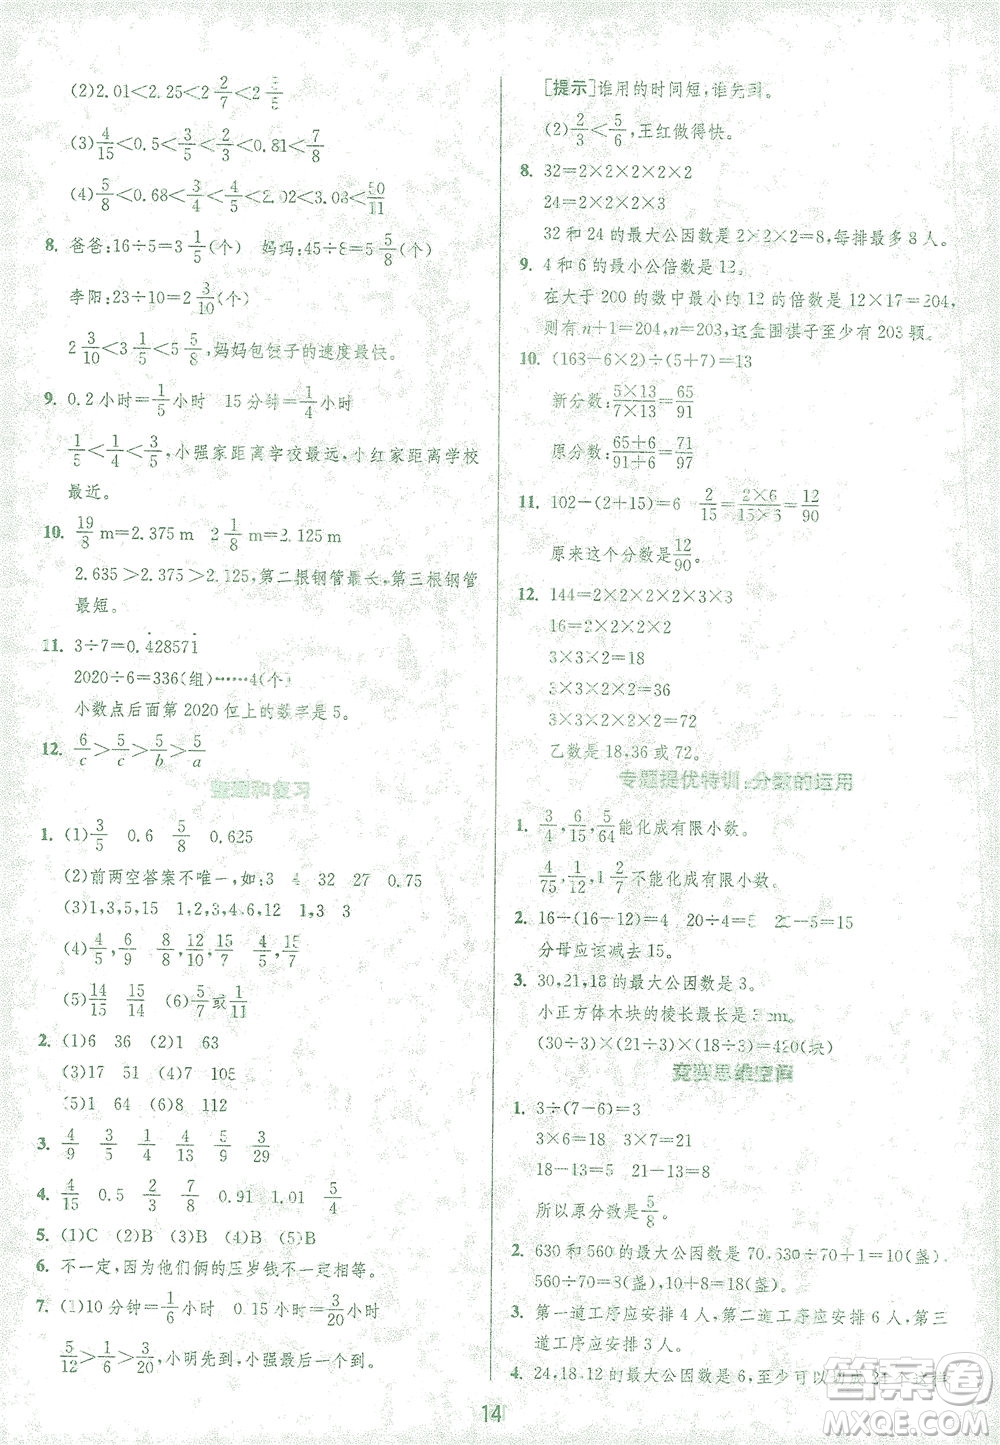 (2)2.01<2.25<2 2/7<2 3/5
(3)4/15<0.5<5/6<0.81<7/8
(4)5/8<0.68<3/4<4/5<2.02<3.08<50/11
8. 爸爸:16÷5=3 1/5(个) 妈妈:45÷8=5 5/8(个)
李阳:23÷10=2 3/10(个)
2 3/10<3 1/5<5 5/8,妈妈包饺子的速度最快。
9. 0.2小时=1/5小时 15分钟=1/4小时
1/5<1/4<1/3,小强家距离学校最远,小红家距离学校
最近。
10. 19/8 m=2.375 m 2 1/8 m=2.125 m
2.635>2.375>2.125,第二根钢管最长,第三根钢管
最短。
11. 3÷7=0.4̇28571̇
2020÷6=336(组)……4(个)
小数点后面第2020位上的数字是5。
12. 6/c>5/c>5/b>5/a
整理和复习
1. (1)3/5 0.6 5/8 0.625
(2)前两空答案不唯一,如:3 4 32 27 0.75
(3)1,3,5,15 1,2,3,4,6,12 1,3
(4)4/5,6/9 8/8,12/10,15/7 4/5,15/10
(5)14/15 15/14 (6)5/7或1/11
2. (1)6 36 (2)1 63
(3)17 51 (4)7 105
(5)1 64 (6)8 112
3. 4/9 3/5 1/4 4/9 5/9 3/29
4. 4/15 0.5 2/3 7/8 0.91 1.01 5/4
5. (1)C (2)B (3)B (4)B (5)B
6. 不一定,因为他们俩的压岁钱不一定相等。
7. (1)10分钟=1/6小时 0.15小时=3/20小时
5/12>1/6>3/20,小明先到,小强最后一个到。
[提示]谁用的时间短,谁先到。
(2)2/3<5/6,王红做得快。
8. 32=2×2×2×2×2
24=2×2×2×3
32和24的最大公因数是2×2×2=8,每排最多8人。
9. 4和6的最小公倍数是12。
在大于200的数中最小的12的倍数是12×17=204,
则有n+1=204,n=203,这盒围棋子至少有203颗。
10. (168-6×2)÷(5+7)=13
新分数:5×13/7×13=65/91
原分数:65+6/91+6=71/97
11. 102-(2+15)=6 2/15=2×6/15×6=12/90
原来这个分数是12/90。
12. 144=2×2×2×2×3×3
16=2×2×2×2
3×3×2=18
3×3×2×2=36
3×3×2×2×2=72
乙数是18,36或72。
专题提优特训:分数的运用
1. 3/4,6/15,5/64能化成有限小数。
4/75,1/12,1/15不能化成有限小数。
2. 16-(16-12)=4 20÷4=5 20-5=15
分母应该减去15。
3. 30,21,18的最大公因数是3。
小正方体木块的棱长最长是3 cm。
(30÷3)×(21÷3)×(18÷3)=420(块)
竞赛思维空间
1. 3÷(7-6)=3
3×6=18 3×7=21
18-13=5 21-13=8
所以原分数是5/8。
2. 630和560的最大公因数是70,630÷70+1=10(盏)
560÷70=8(盏),10+8=18(盏)
3. 第一道工序应安排4人,第二道工序应安排6人,第三
道工序应安排3人。
4. 24,18,12的最大公因数是6,至少可以
14
答案圈
MXQE.COM